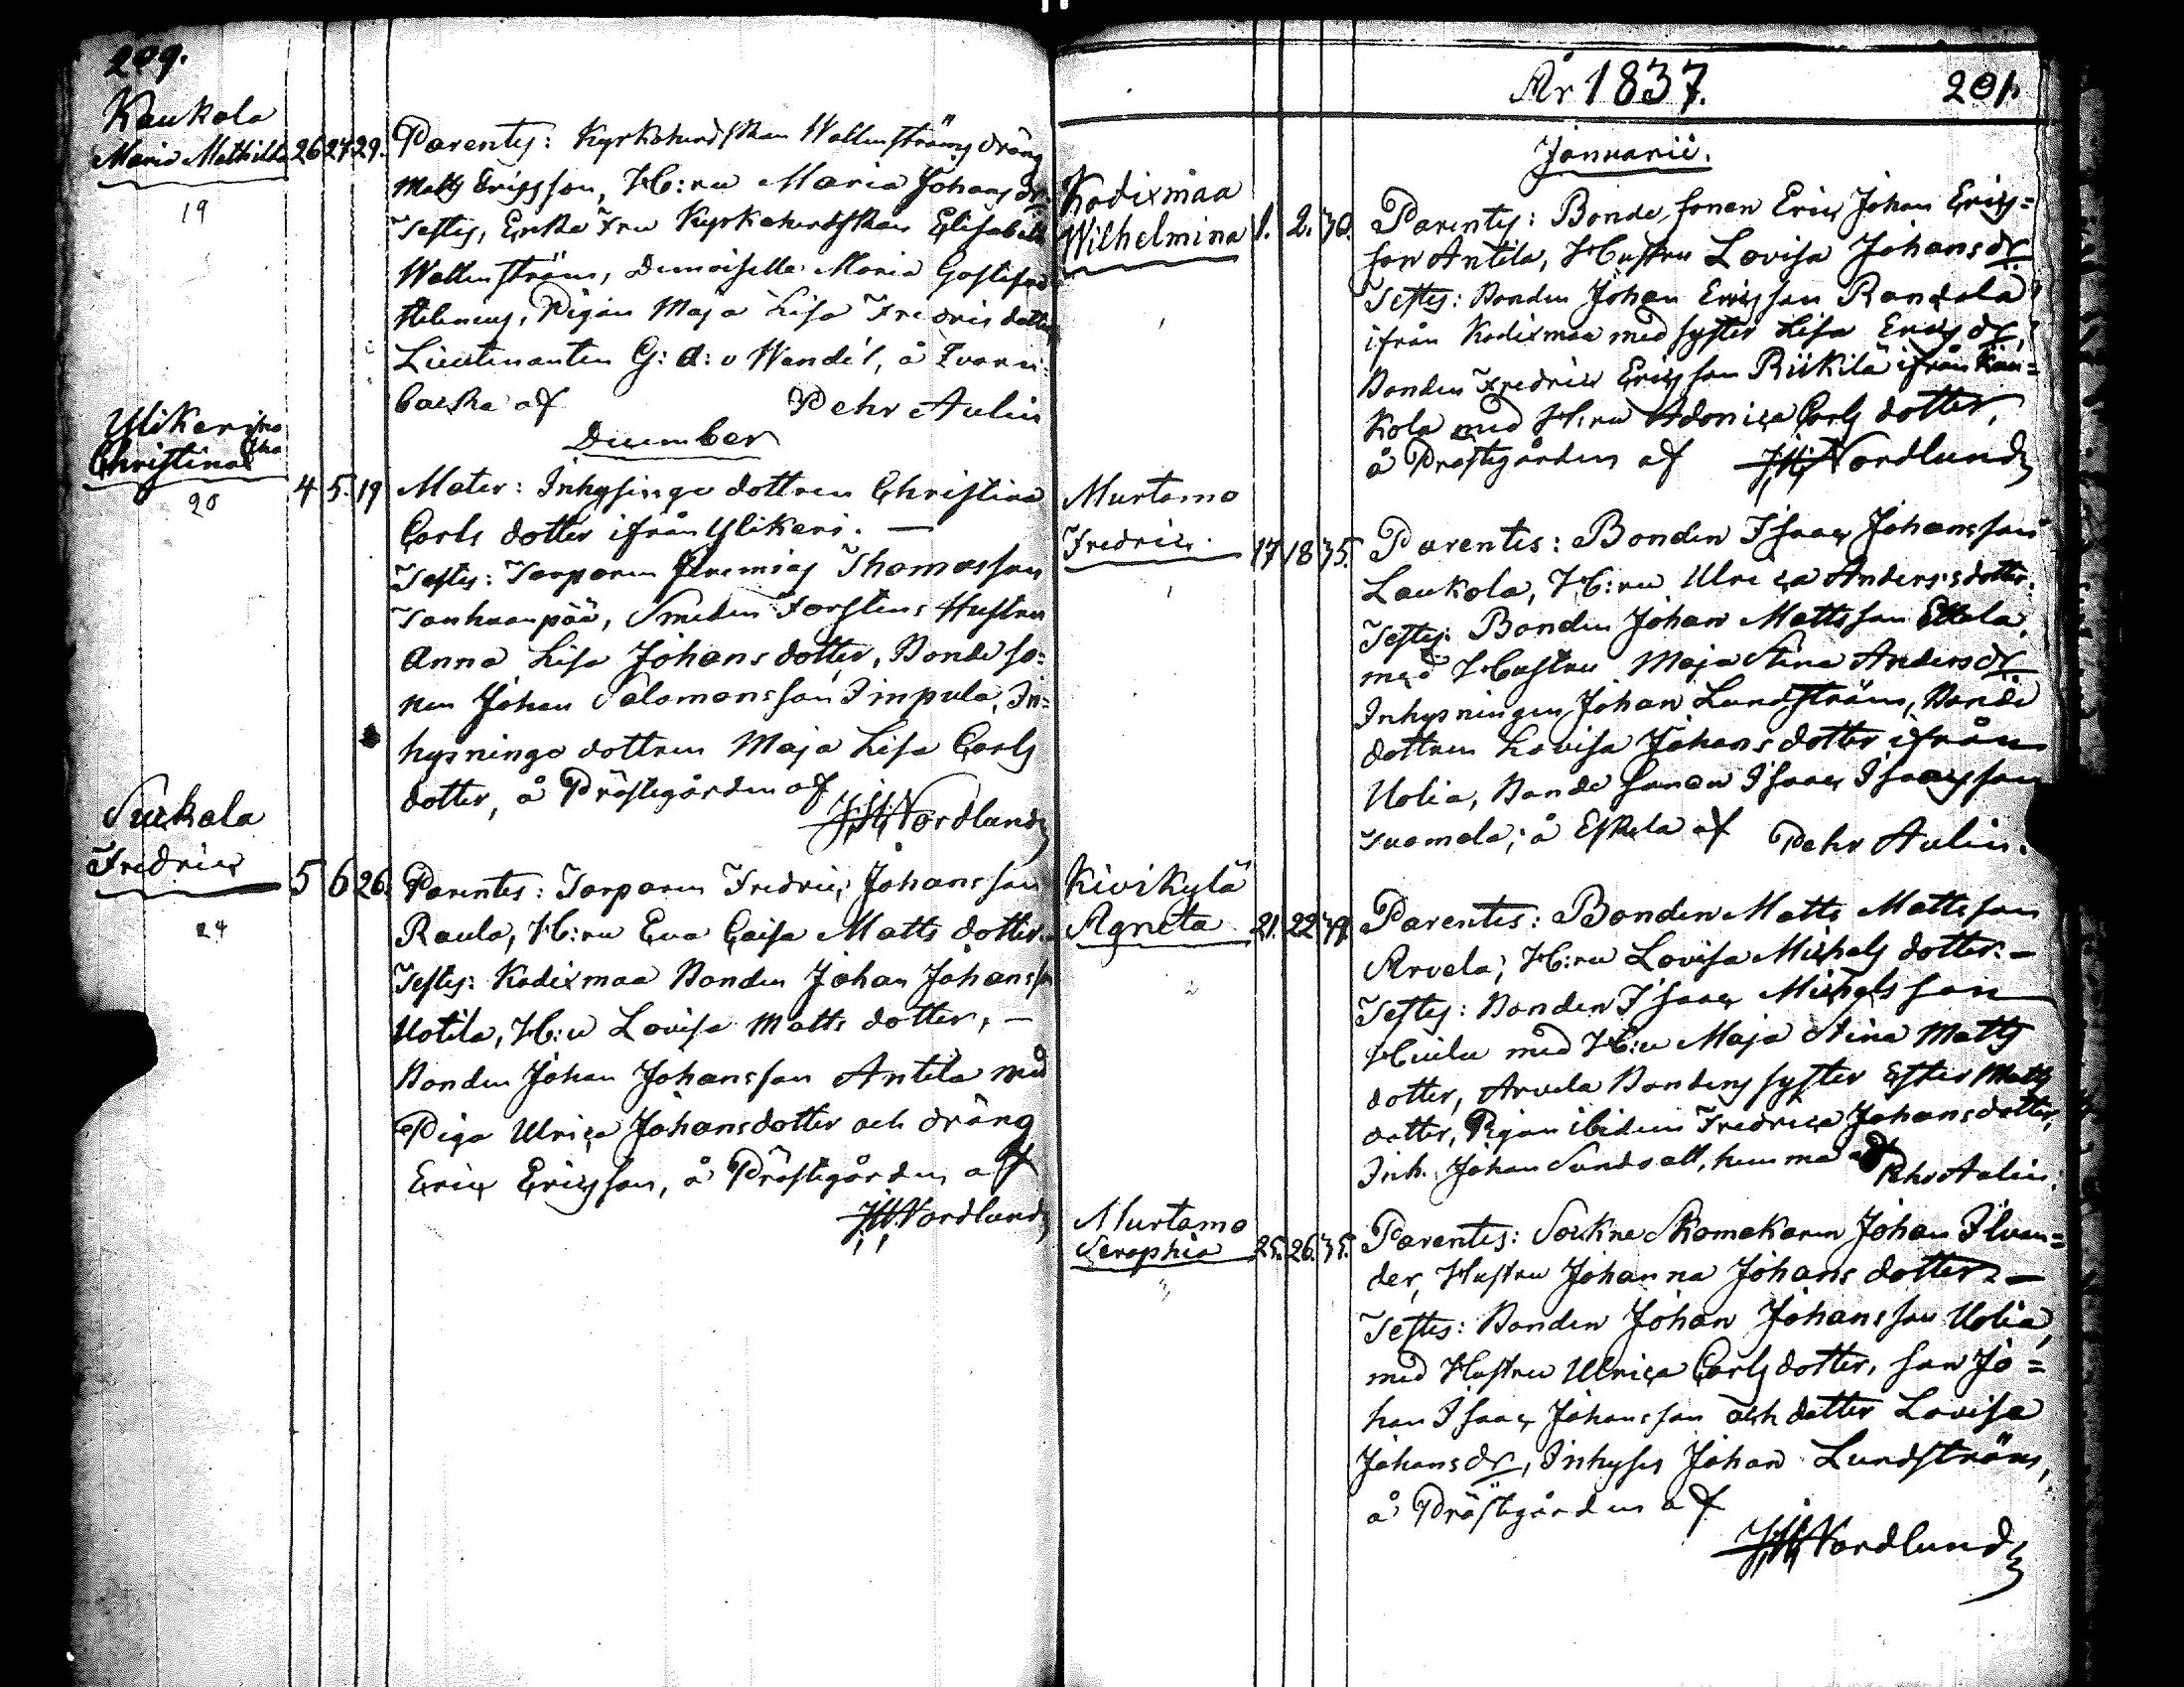 209.
Kaukola
Maria Mathilda 26 27 29.
19
Parentes: Kyrkoherdskan Wallenströms dräng
Matts Ericsson, H:ru Maria Johans dr
Testes, Enke Fru Kyrkoherdskan Elisabeth
Wallenström, Demoiselle Maria Gustafva
Heleneus, Pigan Maja Lisa Fredrics dotter
Lieutenanten G: A: v Wendel, å Qvarn
backa af Pehr Aulin
December
Ylikeri
Christina
20
4 5. 19
Mater: Inhysinge dottren Christina
Carls dotter ifrån Ylikeri. —
Testes: Torparen Jeremias Thomasson
Tanhuanpää, Smeden Forstens Hustru
Anna Lisa Johans dotter, Bonde so=
nen Johan Salomonsson Simpula, In=
hysninge dottren Maja Lisa Carls
dotter, å Prästegården af
Nordlund
Suckala
Fredric 5 6 26.
24
Parentes: Torparen Fredric Johansson
Raula, H:ru Eva Caisa Matts dotter.
Testes: Kodixmaa Bonden Johan Johansso
Uotila, H:u Lovisa Matts dotter, —
Bonden Johan Johansson Antila med
Piga Ulrica Johansdotter och dräng
Eric Ericsson, å Prästegården af
Nordlund
År 1837. 201.
Januarii.
Kodixmaa
Wilhelmina 1. 2. 30.
Parentes: Bonde sonen Eric Johan Erics=
son Antila, Hustru Lovisa Johans dr
Testes: Bonden Johan Ericsson Randala
ifrån Kodixmaa med syster Lisa Erics dr,
Bonden Fredric Ericsson Riikilä ifrån Kau=
kola med H:ru Adonica Carls dotter,
å Prästegården af Nordlund
Murtamo
Fredric. 17 18 35.
Parentes: Bonden Isaac Johansson
Laukola, H:ru Ulrica Anders dotter.
Testes: Bonden Johan Mattsson Ettala,
med Hustru Maja Stina Anders dr.
Inhysningen Johan Lundström, Bonde
dottren Lovisa Johans dotter ifrån
Uolia, Bonde sonen Isaac Isaacsson
Tuomola; å Eskola af Pehr Aulin.
Kivikylä
Agneta 21. 22
Parentes: Bonden Matts Mattsson
Arvela; H:ru Lovisa Michels dotter. —
Testes: Bonden Isaac Michelsson
med H:u Maja Stina Matts
dotter, Arvela Bondens syster Ester Matts
dotter, Pigan ibidem Fredrica Johansdotter,
Inh. Johan Sundvall, hemma af Pehr Aulin.
Murtamo
Seraphia 25. 26. 35.
Parentes: Sockne Skomakaren Johan Ilvan=
der, Hustru Johanna Johans dotter. —
Testes: Bonden Johan Johansson Uolia,
med Hustru Ulrica Carls dotter, son Jo=
han Isaac Johansson och dotter Lovisa
Johans dr, Inhyses Johan Lundström,
å Prästegården af
Nordlund